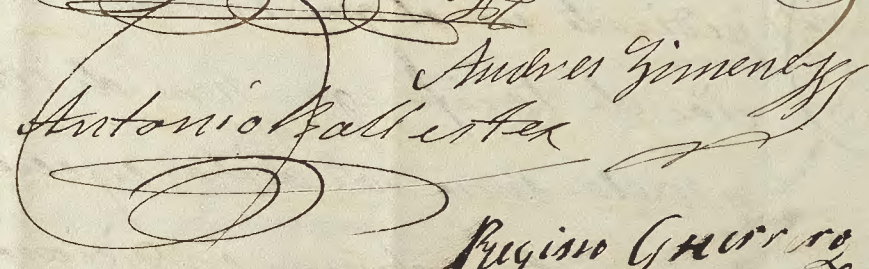 Andres Gimenez
Antonio Ballester
Regino Guerrero